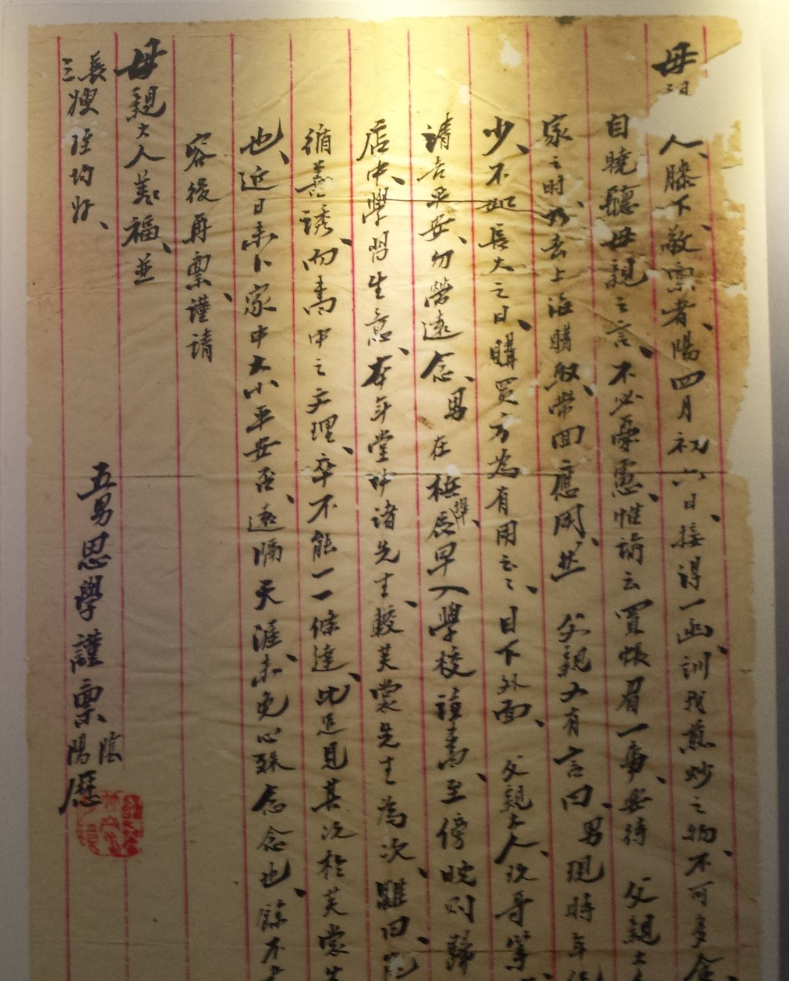 母親 人膝下敬稟者陽四月初六日接得一函訓我煎炒之物不可多食
自曉聽母親之言不必憂慮惟諭云買帳眉一事要待 父親大人
家之時 去上海購 帶回應用並 父親又有言曰男現時年
少不如長大之日購買方為有用云云目下外面 父親大人 哥等
請告平安勿勞遠念男 在校 早入學校讀書至傍晚則歸
店中學習生意本年堂中諸先生較芙裳先生為次雖曰
循善誘而書中之文理卒不能一一條達此足見其次於芙裳
也近日未卜家中大小平安否遠隔天涯未免心殊念念也餘不
容後再稟謹請
母親大人萬福並
長三嫂 均好
五男思學謹稟 陰陽曆